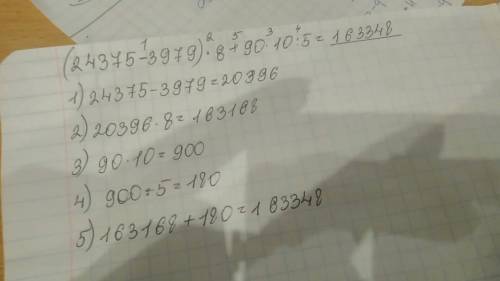 (24375-¹3979)·²8+⁵90·³10:⁴5=163348
1) 24375-3979=20396
2) 20396·8=163168
3) 90·10=900
4) 900÷5=180
5) 163168+180=163348